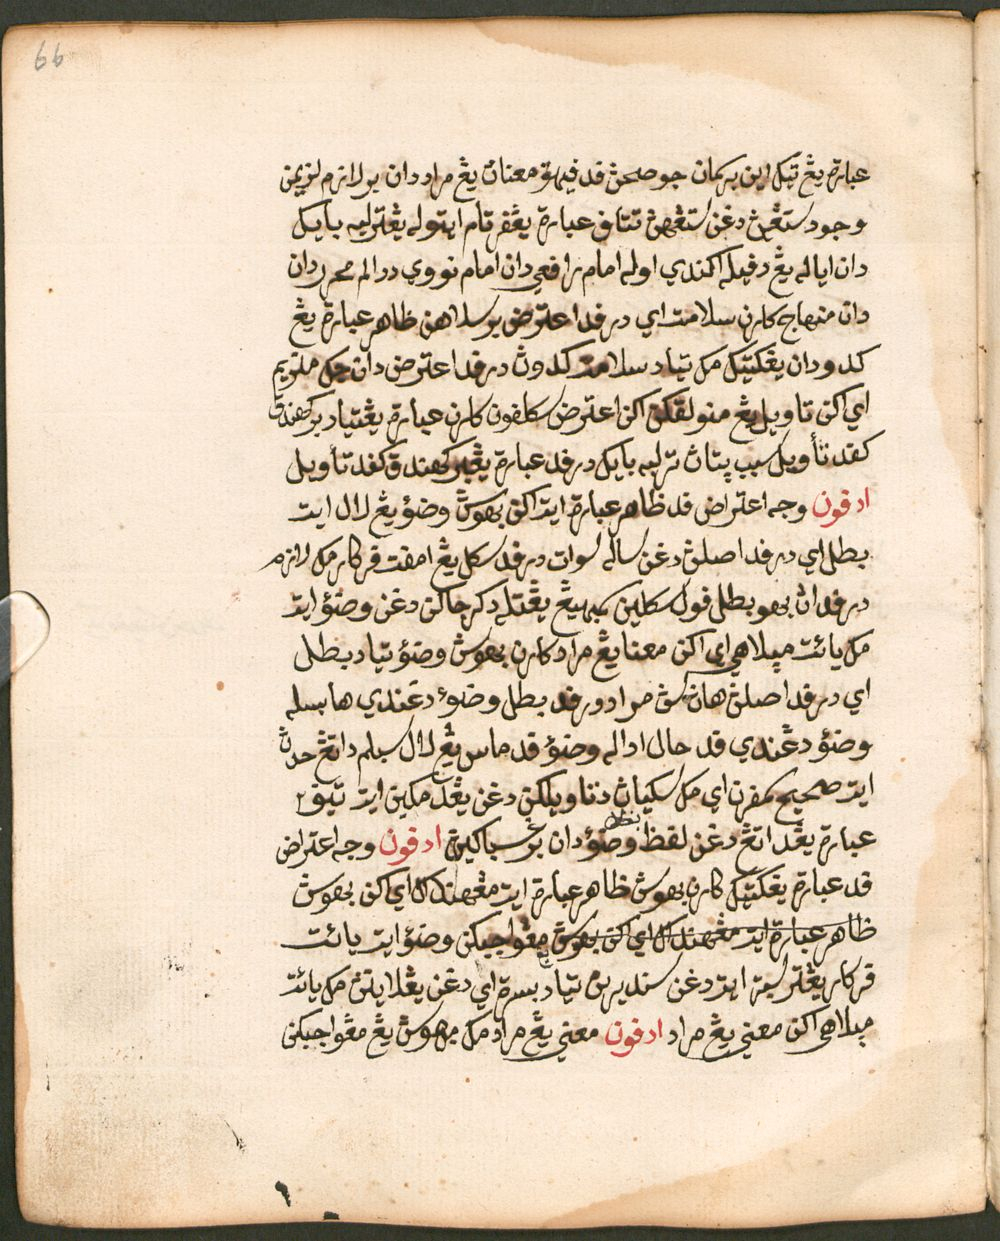 66
عبارة يڠ تيݢ اين برمان جو صحن قد فيهق معنان يڠ مراد دان بر لازم لزيمن
وجود ستڠهن دڠن ستڠهن تتاف عبارة يڠفرتام ايتوله يڠترلبه بايك
دان اياله يڠ دفيله اكندي اوله امام رافعي دان امام نووي ددالم محرر دان
دان منهاج كارن سلامت اي درفد اعترض برسلاهن ظاهر عبارة يڠ
كدو دان يڠكتيݢ مك تياد سلامت كدون درفد اعترض دان جك ملتزيم
اي اكن تاويل يڠ منولقكن اكن اعترض سكلفون كارن عبارة يڠتياد بركهندق
كفد تأويل سبب ترلبه بايك درفد عبارة يڠبركهندق كفد تأويل
ادفون وجه اعتراض قد ظاهر عبارة ايت اكن بهوس وضؤ يڠ لال ايت
بطل اي درفد اصلن دڠن ساله سوات درفد سكل يڠ امفت فركار مك لازم
درفدان بهو بطل فول سكلين يڠتله دكرجاكن دڠن وضؤ ايت
مك يائت مپلاهي اي اكن معنا يڠ مراد كارن بهوس وضؤ تياد بطل
اي درفد اصلن هان مراد درفد بطل وضوء دڠندي هابسله
وضؤ دڠندي قد حال اداله وضؤ قد ماس يڠ لال سبلم داتڠ حدث
ايت صحيح سمفرن اي مك دتاويلكن دڠن يڠدمكين ايت تيق٢
عبارة يڠداتڠ دڠن لفظ بطل وضؤ دان برڠ سباكين ادفون وجه اعتراض
قد عبارة يڠكتيݢ كارن بهوس ظاهر عبارة ايت مڠهندكي اي اكن بهوس
ظاهر عبارة ايت مڠهندكي اي اكن بهوس مڠواجبكن وضؤ ايت يائت
فركار يڠترسبت ايت دڠن سنديرين تياد بسرت اي دڠن يڠلاينن مك يائت
مپلاهي اكن معني يڠ مراد ادفون معني يڠ مراد مك بهوس يڠ مڠواجبكن